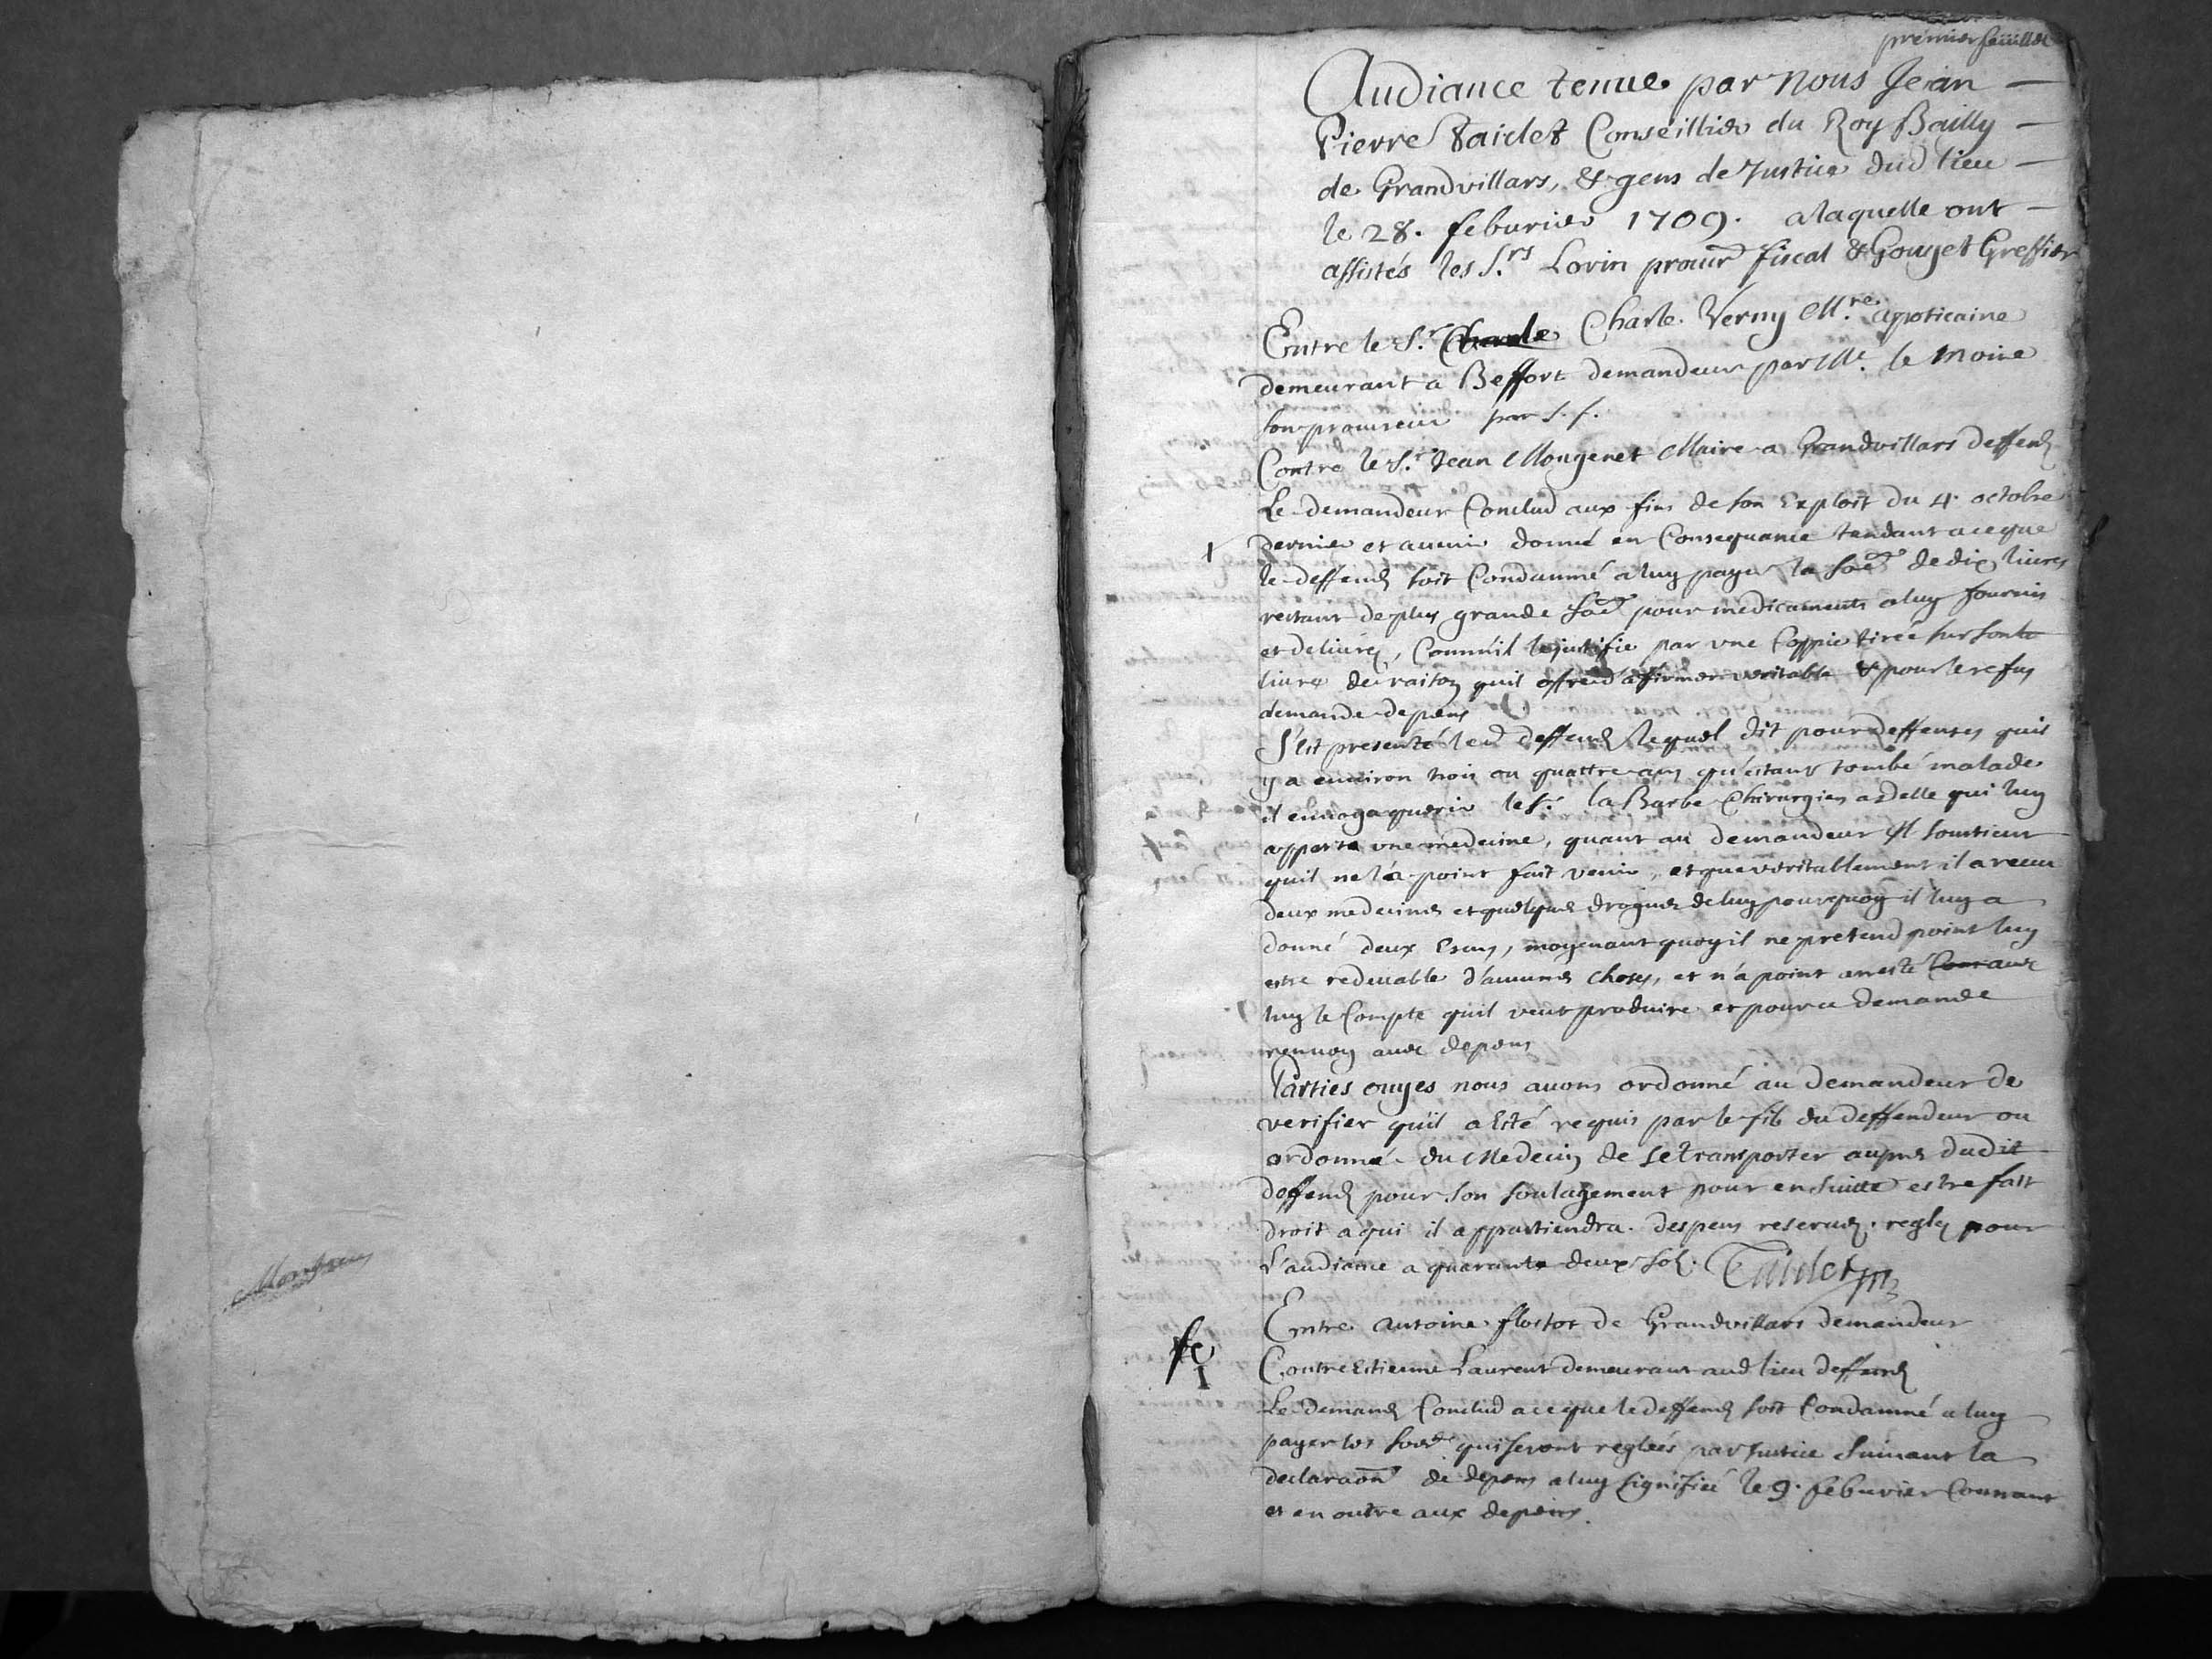 premier feuillet
Audiance tenue par nous Jean
Pierre Taiclet Conseillier du Roy Bailly
de Grandvillars, & gens de Justice dud lieu
le 28. feburier 1709. a laquelle ont
assistés les S.rs Lovin procur fiscal & Gouget Greffier
Entre le S.r Charle Charle Verny M.re apoticaire
demeurant a Beffort demandeur par M.e le Moine
son procureur par s. f.
Contre le S.r Jean Mougenet Maire a Grandvillars deffend
Le demandeur Conclud aux fins de son Exploit du 4. octobre
1 dernier et avenir donné en Consequance tendant a ce que
le deffend soit Condamné a luy payer la so.e de dix livres
restant de plus grande so.e pour medicaments a luy fournis
et delivréz, Comm'il le justifie par une Coppie tirée sur son
livre de raison quil offre d'afirmer veritable & pour le refus
demande depens
S'est presenté led deffend lequel dit pour deffenses quil
y a environ trois ou quattre ans qu'estant tombé malade
il envoya querir le S.r la Barbe Chirurgien a delle qui luy
apporta une medecine, quant au demandeur il soustient
quil ne l'a point fait venir, et que veritablement il a receu
deux medecines et quelques drogues de luy pourquoy il luy a
donné deux Escus, moyenant quoy il ne pretend point luy
estre redevable d'aucunes choses, et n'a point aresté avec
luy le Compte quil veut produire et pour ce demande
renvoy avec depens
Parties ouyes nous avons ordonné au demandeur de
verifier qu'il a Esté requis par le fils du deffendeur ou
ordonné du Medecin de se transporter aupres dudit
deffend pour son soulagement pour ensuitte estre fait
droit a qui il appartiendra. despens reservez. reglez pour
l'audiance a quarante deux sols. Taiclet
Entre Antoine flostot de Grandvillars demandeur
fe 1 Contre Estienne Laurent demeurant aud lieu deffend
Le demand Conclud a ce que le deffend soit Condamné a luy
payer les so.es qui seront reglées par Justice suivant la
declaraon de depens a luy signifiée le 9. feburier Courant
et en outre aux depens.